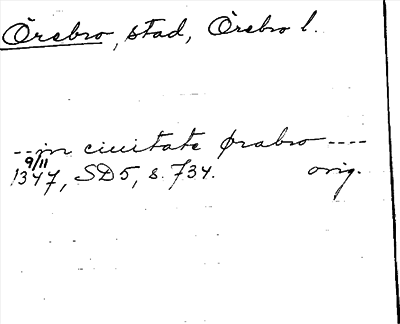 Örebro, stad, Örebro l.
---in ciuitate ørabro ----
9/11
1347, SD5, s. 734. orig.